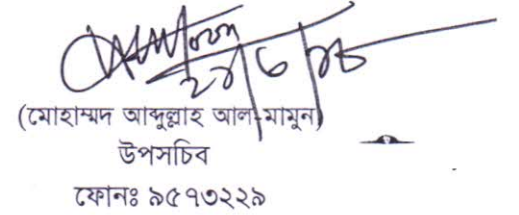 (মোহাম্মদ আব্দুল্লাহ আল-মামুন)
উপসচিব
ফোনঃ ৯৫৭৩২২৯